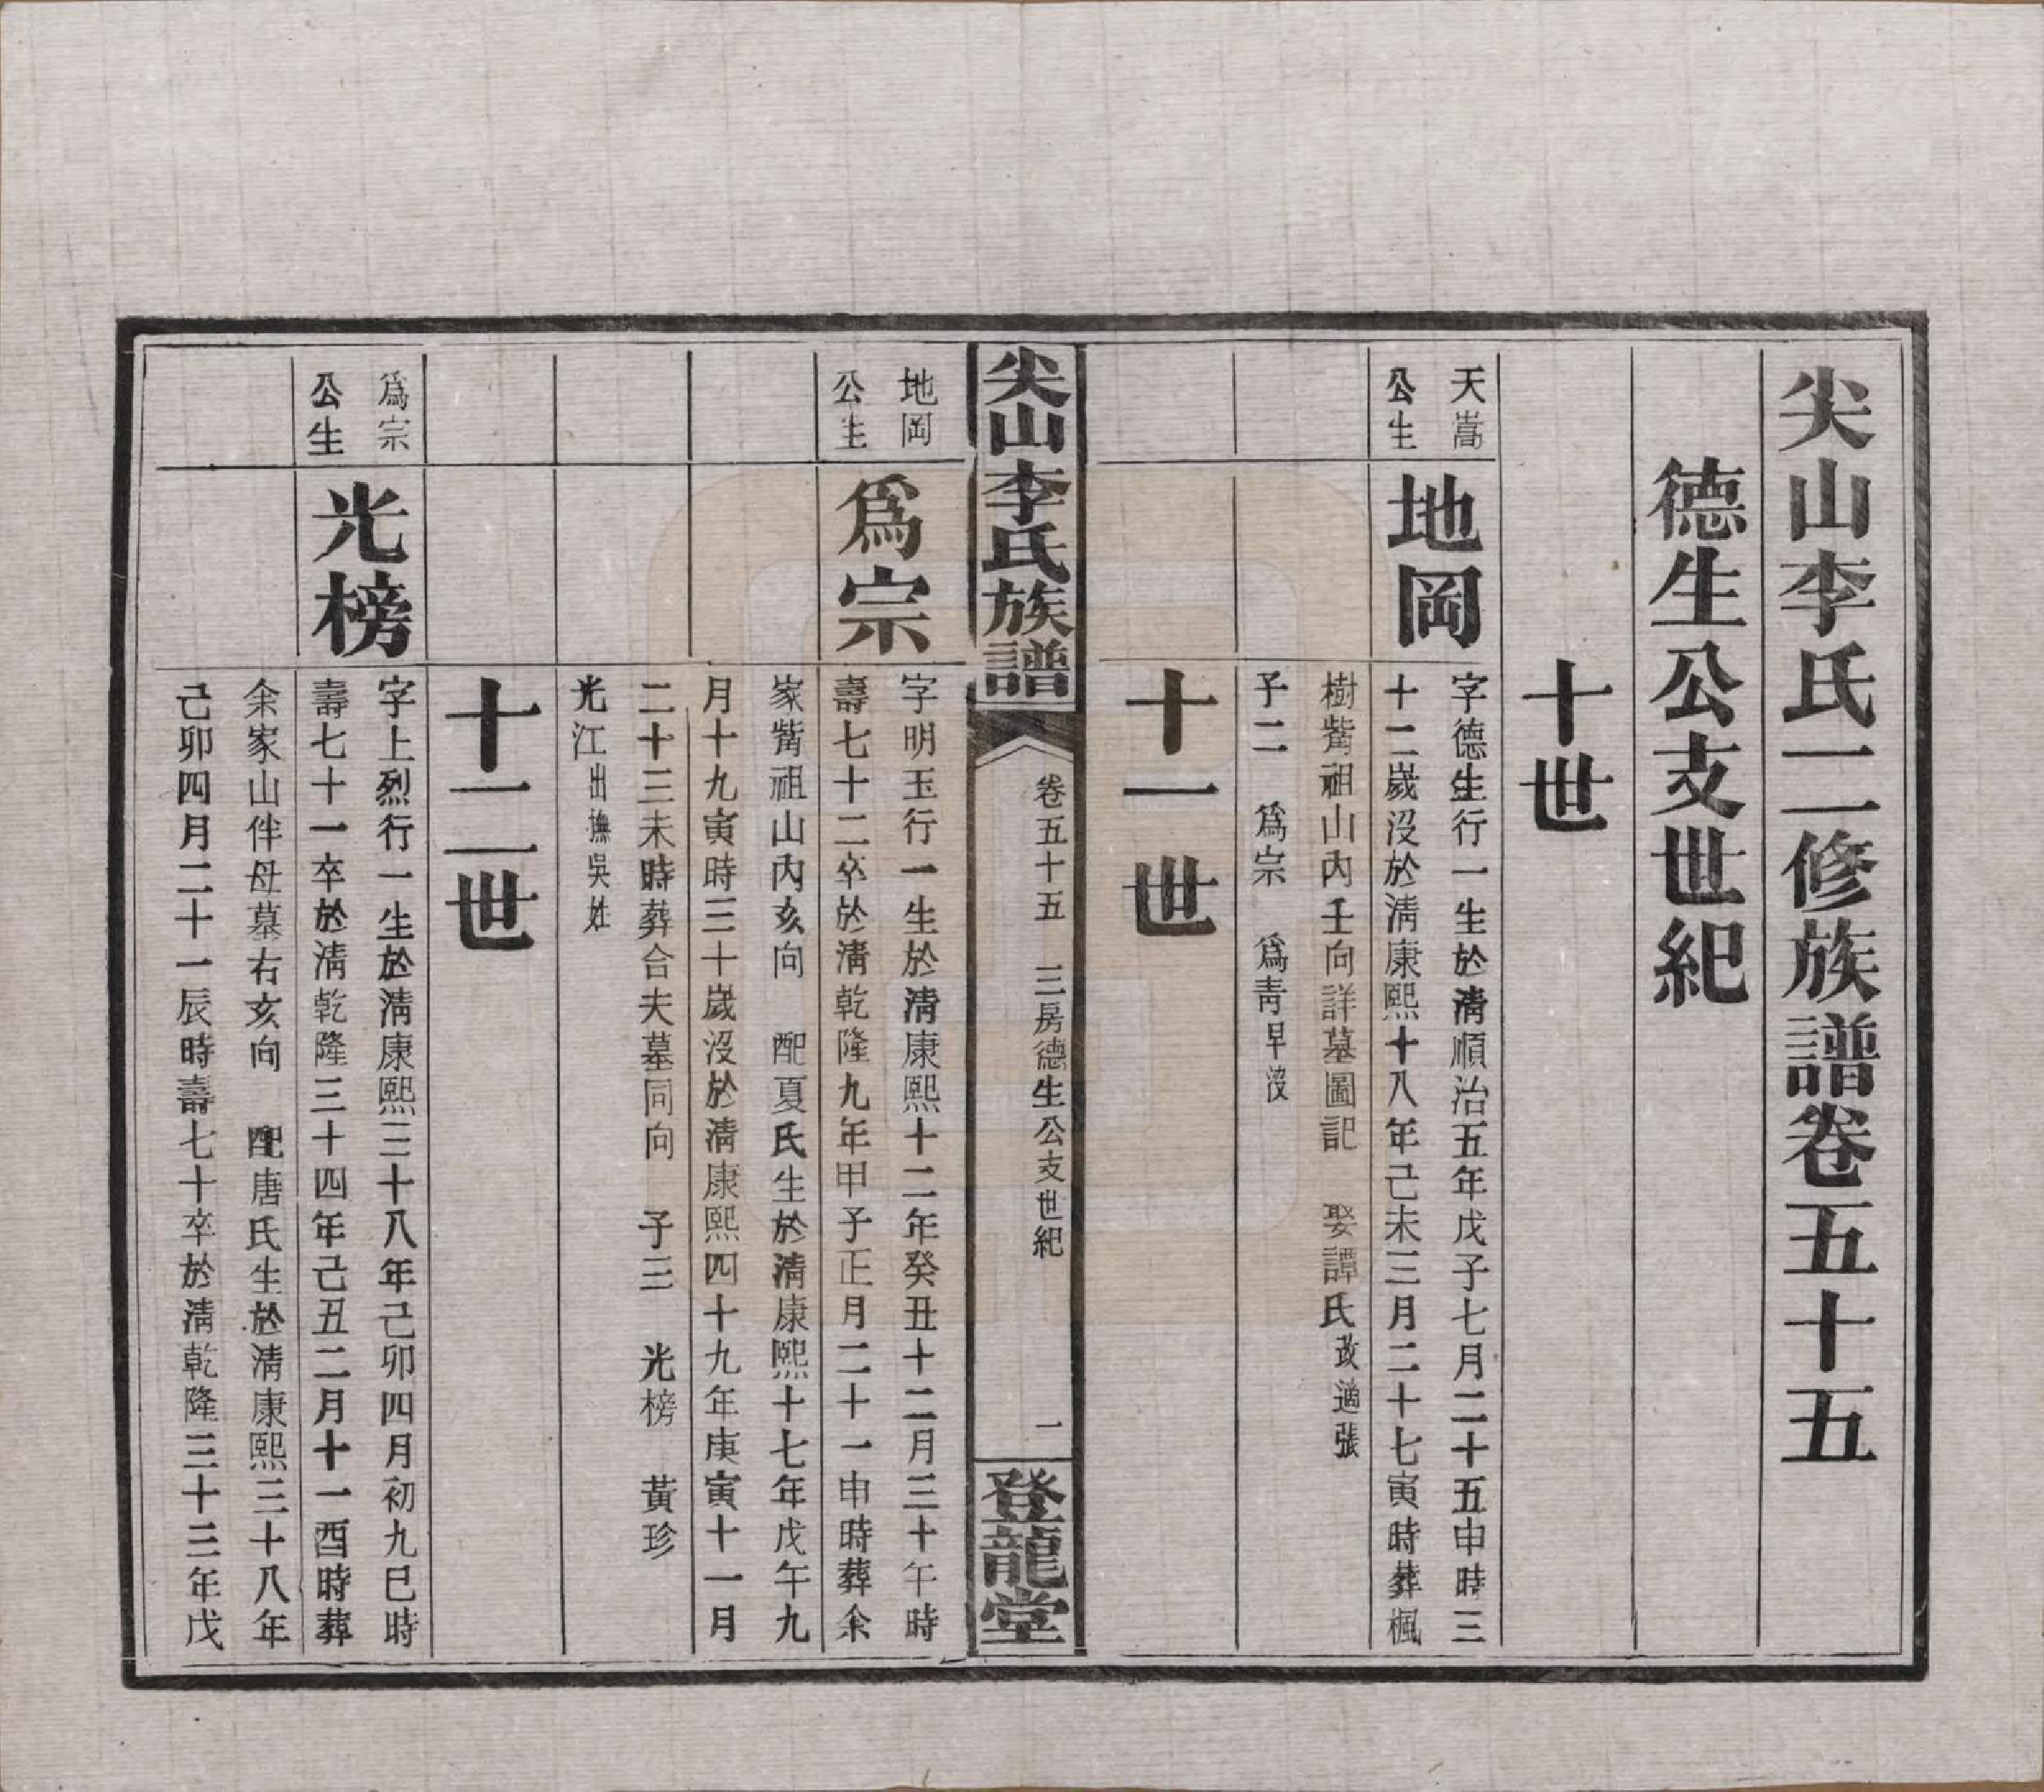 尖山李氏二修族譜卷五十五
德生公支世紀
十世
天嵩
公生
地岡
字德生行一生於淸順治五年戊子七月二十五申時三
十二歲沒於淸康熙十八年己未三月二十七寅時葬楓
樹觜祖山內壬向詳墓圖記 娶譚氏改適張
子二 爲宗 爲靑早沒
十一世
尖山李氏族譜
卷五十五 三房德生公支世紀
一
登龍堂
地岡
公生
爲宗
字明玉行一生於淸康熙十二年癸丑十二月三十午時
壽七十二卒於淸乾隆九年甲子正月二十一申時葬余
家觜祖山內亥向 配夏氏生於淸康熙十七年戊午九
月十九寅時三十歲沒於淸康熙四十九年庚寅十一月
二十三未時葬合夫墓同向 子三 光榜 黃珍
光江出撫吳姓
十二世
爲宗
公生
光榜
字上烈行一生於淸康熙三十八年己卯四月初九巳時
壽七十一卒於淸乾隆三十四年己丑二月十一酉時葬
余家山伴母墓右亥向 配唐氏生於淸康熙三十八年
己卯四月二十一辰時壽七十卒於淸乾隆三十三年戊